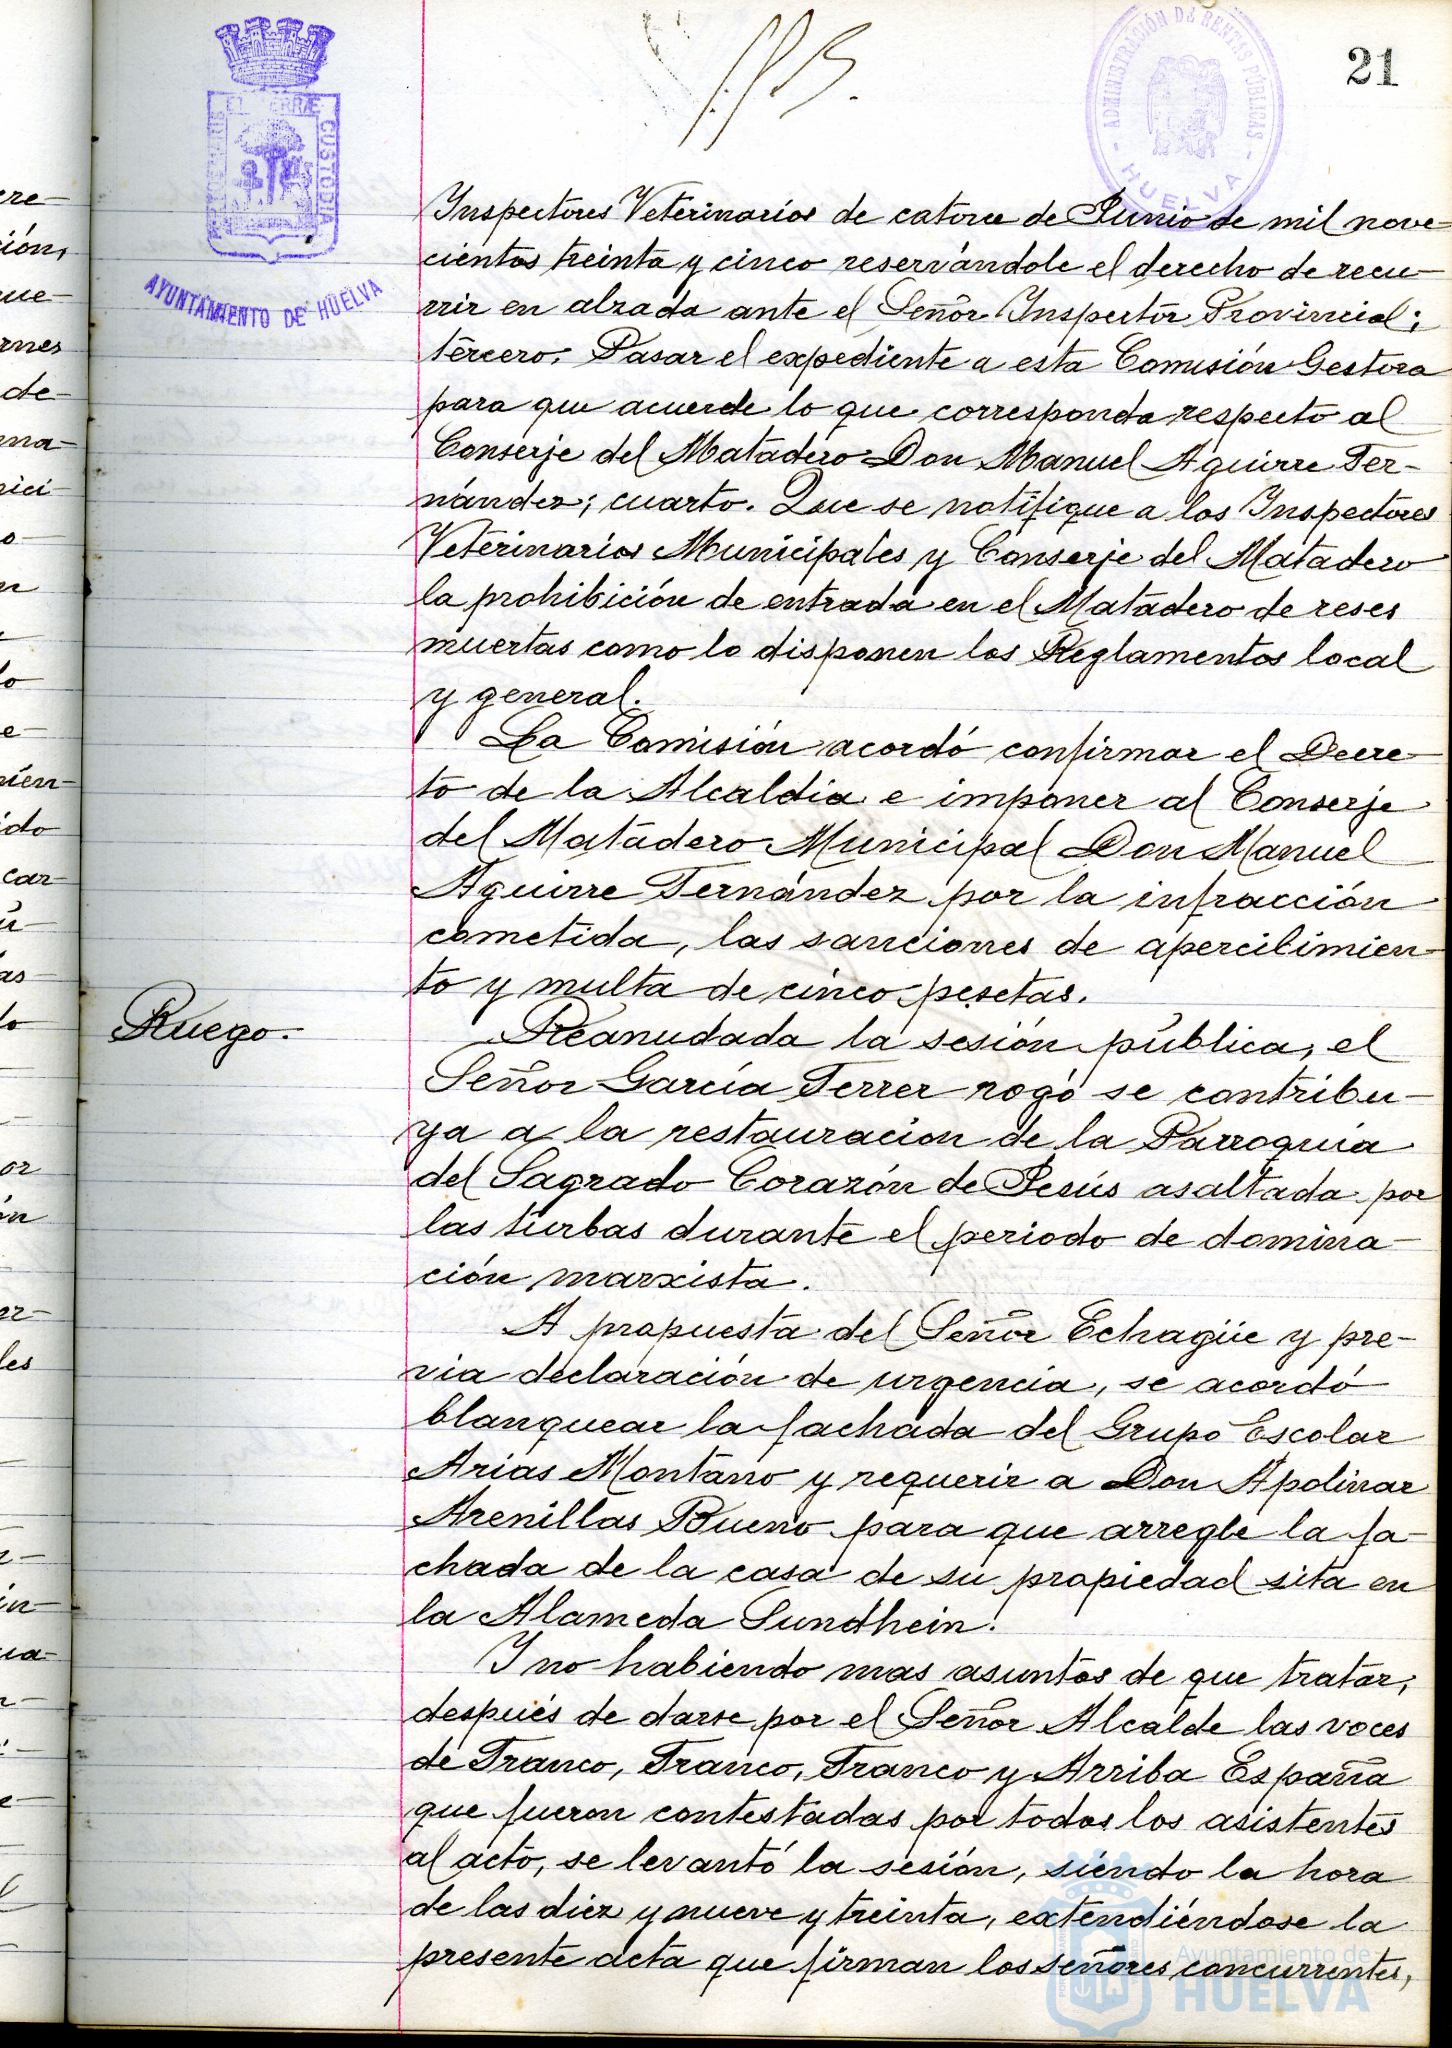 21
ADMINISTRACIÓN DE RENTAS PÚBLICAS
HUELVA
TERRÆ CUSTODIA
AYUNTAMIENTO DE HUELVA
Inspectores Veterinarios de catorce de Junio de mil nove-
cientos treinta y cinco reservándole el derecho de recu-
rrir en alzada ante el Señor Inspector Provincial;
tercero. Pasar el expediente a esta Comisión Gestora
para que acuerde lo que corresponda respecto al
Conserje del Matadero Don Manuel Aguirre Fer-
nández; cuarto. Que se notifique a los Inspectores
Veterinarios Municipales y Conserje del Matadero
la prohibición de entrada en el Matadero de reses
muertas como lo disponen los Reglamentos local
y general.
La Comisión acordó confirmar el Decre-
to de la Alcaldía e imponer al Conserje
del Matadero Municipal Don Manuel
Aguirre Fernández por la infracción
cometida, las sanciones de apercibimien-
to y multa de cinco pesetas.
Ruego.
Reanudada la sesión pública, el
Señor García Ferrer rogó se contribu-
ya a la restauración de la Parroquia
del Sagrado Corazón de Jesús asaltada por
las turbas durante el periodo de domina-
ción marxista.
A propuesta del Señor Echagüe y pre-
via declaración de urgencia, se acordó
blanquear la fachada del Grupo Escolar
Arias Montano y requerir a Don Apolinar
Arenillas Bueno para que arregle la fa-
chada de la casa de su propiedad sita en
la Alameda Sundhein.
Y no habiendo mas asuntos de que tratar,
después de darse por el Señor Alcalde las voces
de Franco, Franco, Franco y Arriba España
que fueron contestadas por todos los asistentes
al acto, se levantó la sesión, siendo la hora
de las diez y nueve y treinta, extendiéndose la
presente acta que firman los señores concurrentes,
Ayuntamiento de
HUELVA